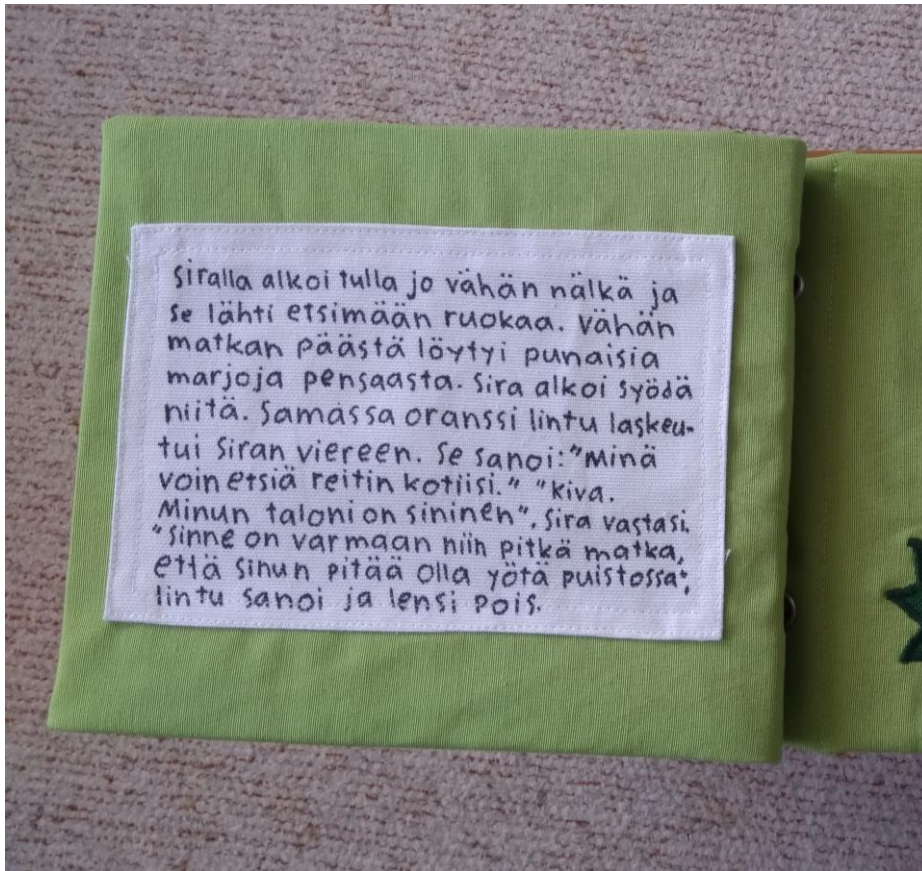 Siralla alkoi tulla jo vähän nälkä ja
se lähti etsimään ruokaa. Vähän
matkan päästä löytyi punaisia
marjoja pensaasta. Sira alkoi syödä
niitä. Samassa oranssi lintu laskeu-
tui Siran viereen. Se sanoi: "Minä
voin etsiä reitin kotiisi." "Kiva.
Minun taloni on sininen", Sira vastasi.
"Sinne on varmaan niin pitkä matka,
että sinun pitää olla yötä puistossa",
lintu sanoi ja lensi pois.